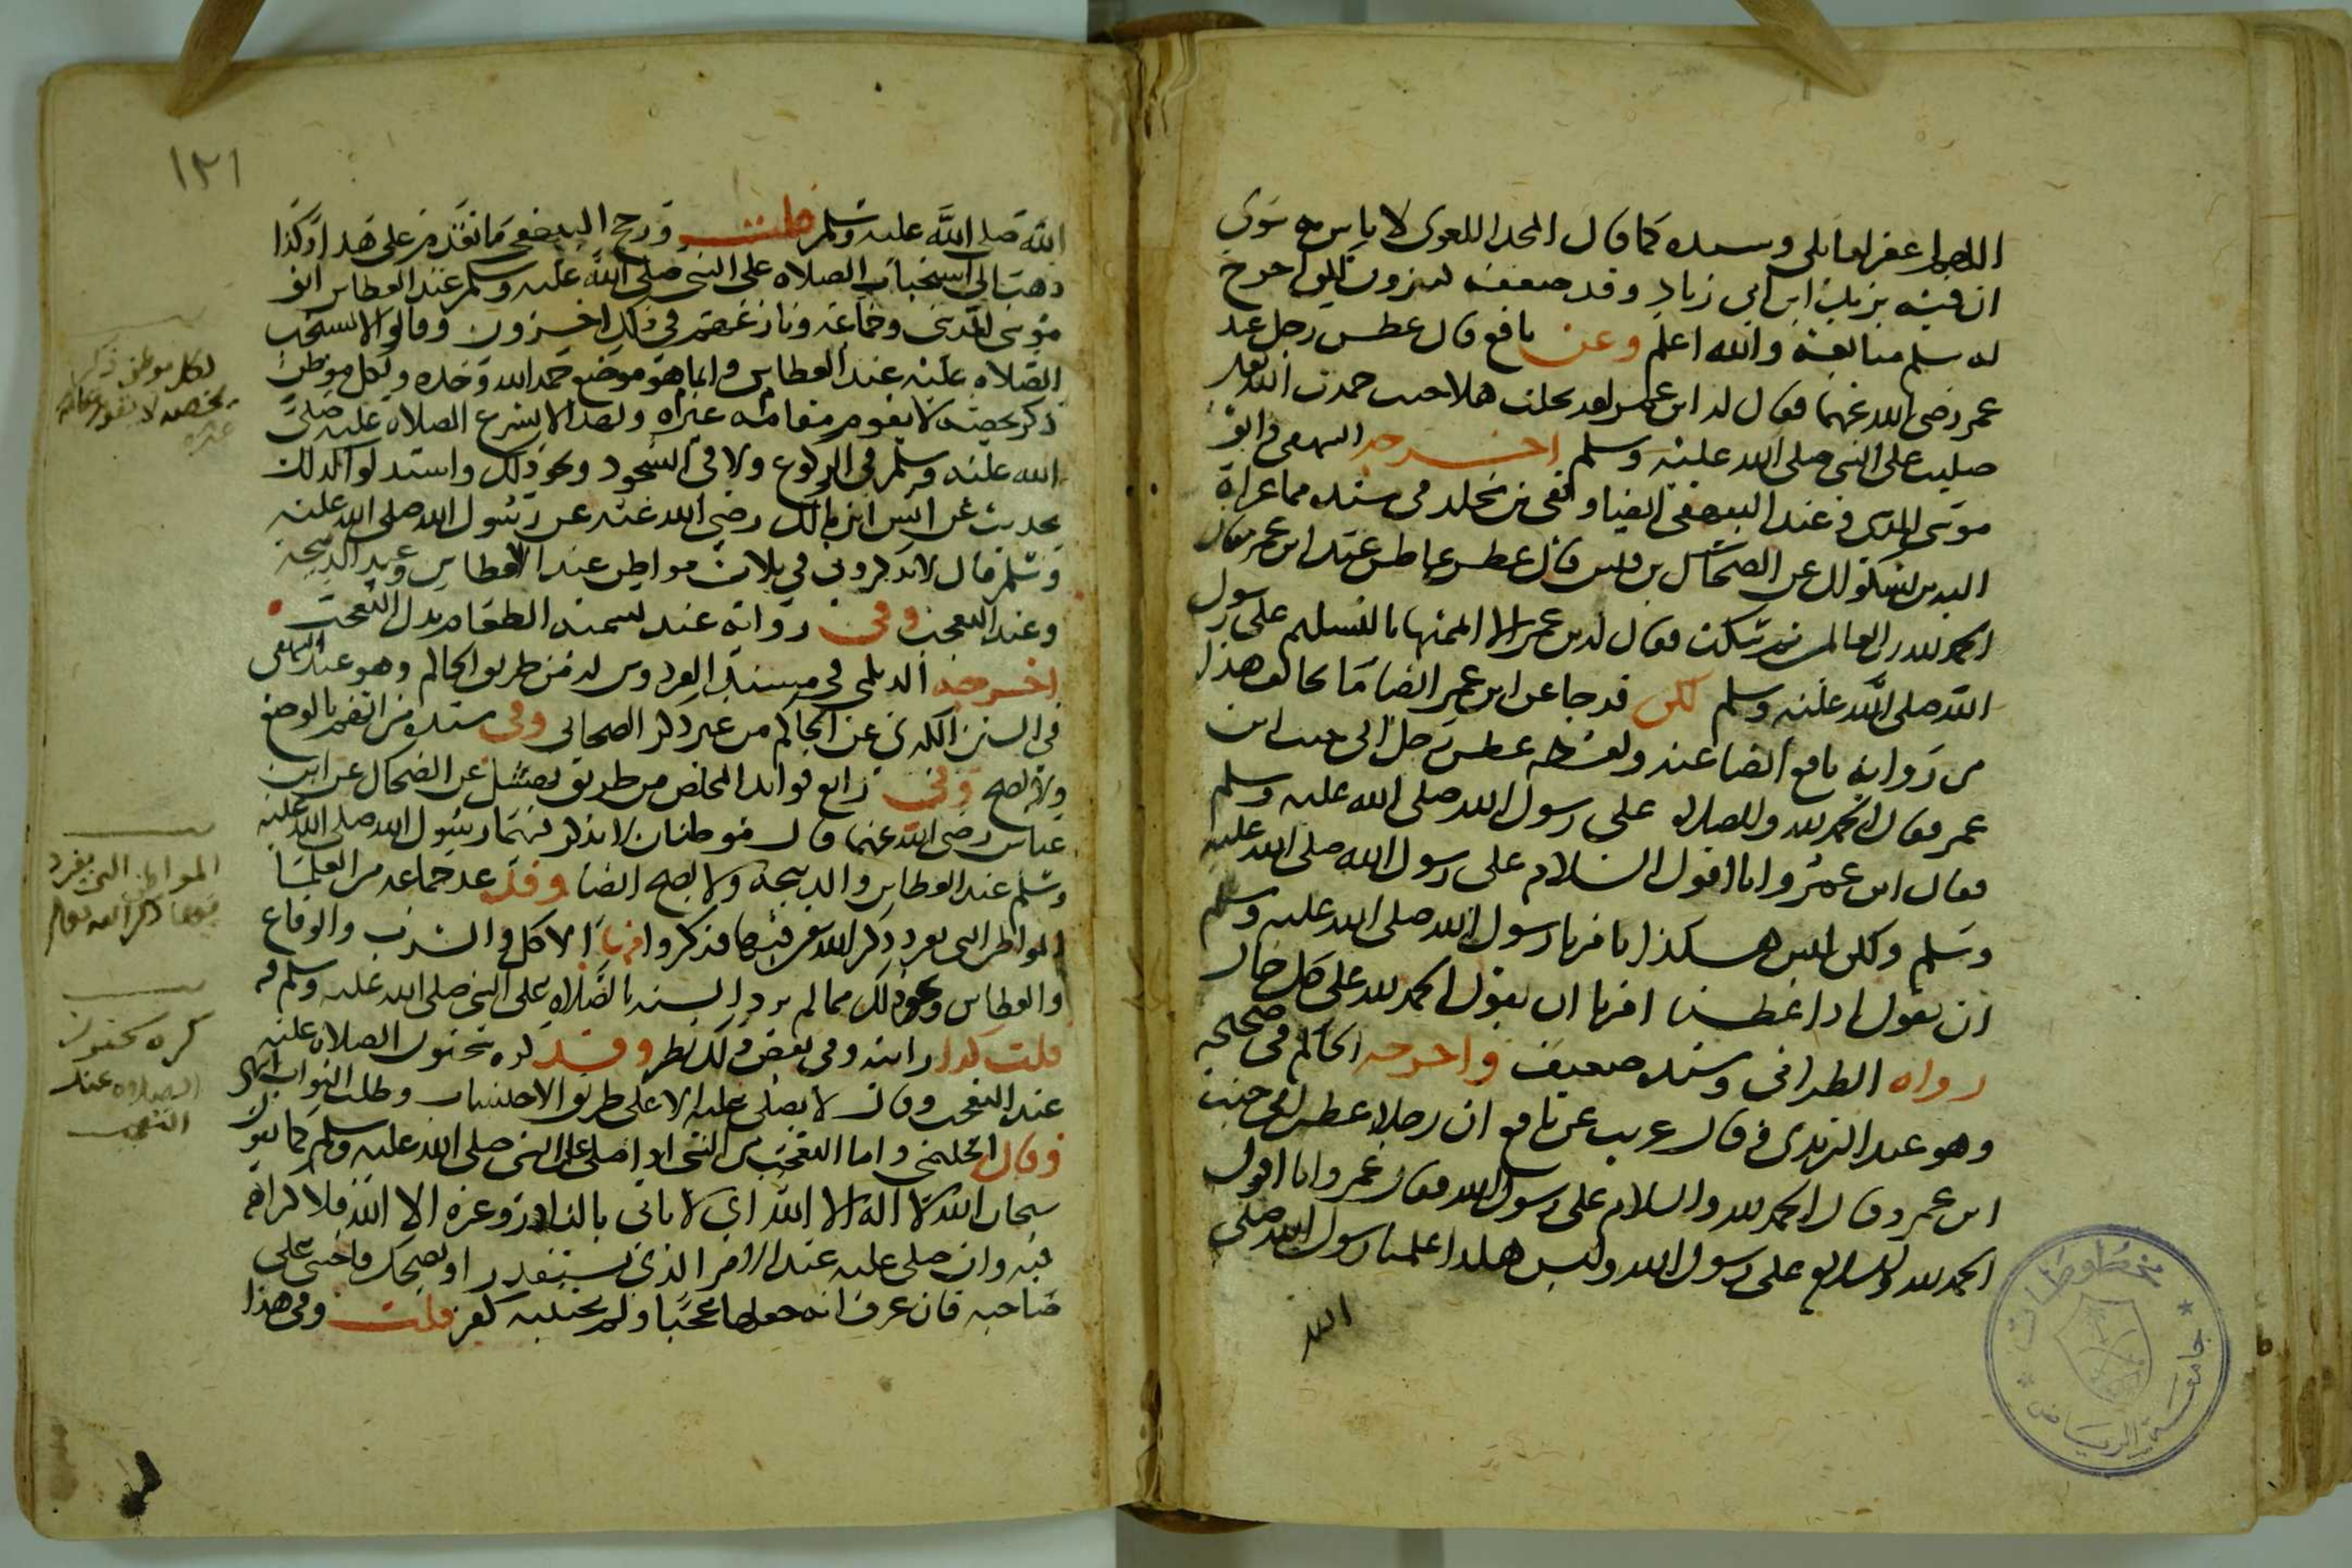 اللهم اغفر لقايلها وسنده كما قال المجد اللغوى لا باس به سوى
ان فيه يزيد ابن ابى زياد وقد ضعفه كثيرون لكن اخرج
له مسلم متابعة والله اعلم وعن نافع قال عطس رجل عند
عمر رضى الله عنهما فقال له ابن عمر لقد بخلت هلا حيث حمدت الله تعالى
صليت على النبى صلى الله عليه وسلم اخرجه البيهقى وابو
موسى المدينى وعند البيهقى ايضا وبقى بن مخلد فى مسنده مما عزاه
اليه بن بشكوال عن الضحاك بن قيس قال عطس عاطس عند ابن عمر فقال
الحمد لله رب العالمين ثم سكت فقال له بن عمر الا اتممتها بالتسليم على رسول
الله صلى الله عليه وسلم لكن قد جا عن ابن عمر ايضا ما يخالف هذا
من رواية نافع ايضا عنه ولفظه عطس رجل الى جنب ابن
عمر فقال الحمد لله والصلاه على رسول الله صلى الله عليه وسلم
فقال ابن عمر وانا اقول السلام على رسول الله صلى الله عليه
وسلم ولكن ليس هكذا امرنا رسول الله صلى الله عليه وسلم
ان نقول اذا عطسنا امرنا ان نقول الحمد لله على كل حال
رواه الطبرانى وسنده ضعيف واخرجه الحاكم فى صحيحه
وهو عند الترمذى وقال غريب عن نافع ان رجلا عطس الى جنب
ابن عمر وقال الحمد لله والسلام على رسول الله فقال بن عمر وانا اقول
الحمد لله والسلام على رسول الله وليس هكذا علمنا رسول الله صلى
الله
١٢١
الله صلى الله عليه وسلم قلت ورجح البيهقى ما تقدم على هذا وكذا
ذهب الى استحباب الصلاه على النبى صلى الله عليه وسلم عند العطاس ابو
موسى المدينى وجماعة ونازعهم فى ذلك اخرون وقالوا لا تستحب
الصلاه عليه عند العطاس وانما هو موضع حمد الله وحده ولكل موطن
ذكر يخصه لا يقوم مقامه غيره ولهذا لا يشرع الصلاه عليه صلى
الله عليه وسلم فى الركوع ولا فى السجود ونحو ذلك واستدلوا لذلك
بحديث عن انس ابن مالك رضى الله عنه عن رسول الله صلى الله عليه
وسلم قال لا تذكرونى فى ثلاث مواطن عند العطاس وعند الذبيحة
وعند التعجب وفى رواية عند تسمية الطعام بدل التعجب
اخرجه الديلمى فى مسند الفردوس له من طريق الحاكم وهو عند البيهقى
فى السنن الكبرى عن الحاكم من غير ذكر الصحابى وفى سنده من اتهم بالوضع
ولا يصح وفى رابع فوايد المخلص من طريق نهشل عن الضحاك عن ابن
عباس رضى الله عنهما قال موطنان لا يذكر فيهما رسول الله صلى الله عليه
وسلم عند العطاس والذبيحة ولا يصح ايضا وقد عد جماعه من العلما
المواطن التى يفرد ذكر الله عز فيها فذكروا منها الاكل والشرب والوقاع
والعطاس ونحو ذلك مما لم ترد السنه بالصلاه على النبى صلى الله عليه وسلم فيه
قلت كذا راىته وفى بعض ذلك نظر وقد كره سحنون الصلاه عليه
عند التعجب وقال لا يصلى عليه الا على طريق الاحتساب وطلب الثواب انتهى
وقال الحليمى واما التعجب من الشى اذا صلى على النبى صلى الله عليه وسلم كما يقول
سبحان الله لا اله الا الله اى لا ياتى بالنادر وغيره الا الله فلا كراهه
فيه وان صلى عليه عند الامر الذى يستقذر او يضحك فاخشى على
صاحبه فان عرف انه جعلها عجبا ولم يجتنبه كفر قلت وفى هذا
لكل موطن ذكر
يخصه لا يقوم مقامه
غيره
المواطن التى يفرد
فيها ذكر الله تعالى
كره سحنون
الصلاه عند
التعجب
مخطوطات
جامعة الرياض